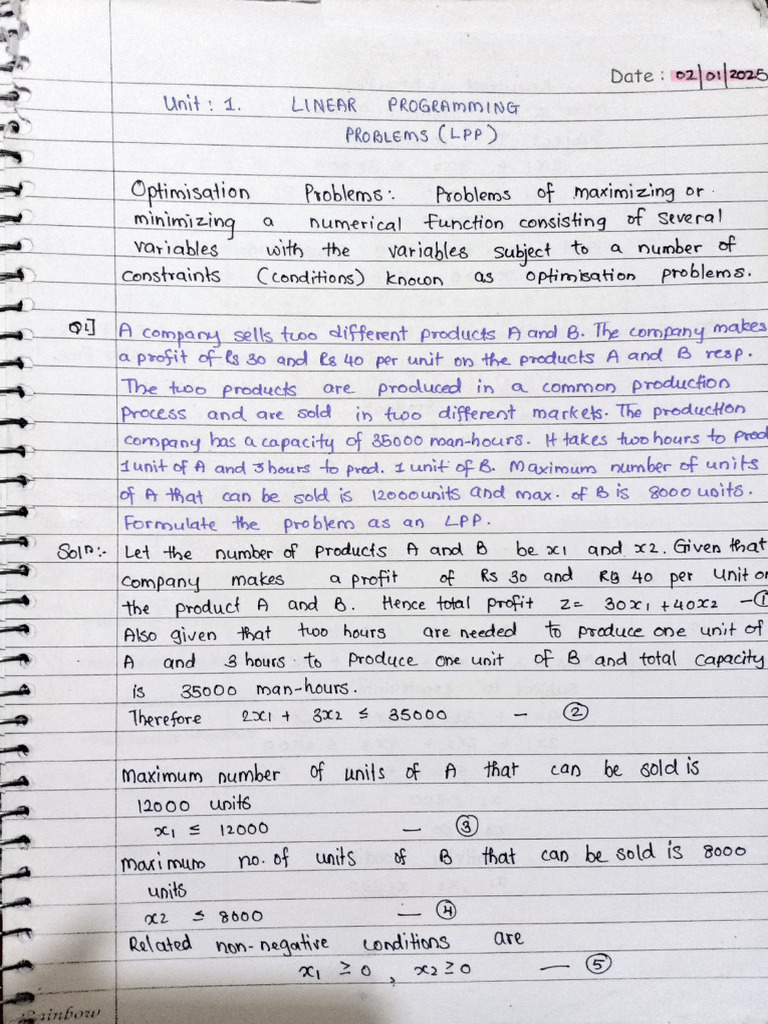 Date : 02/01/2025
Unit : 1. LINEAR PROGRAMMING
PROBLEMS (LPP)
Optimisation Problems: Problems of maximizing or
minimizing a numerical function consisting of several
variables with the variables subject to a number of
constraints (conditions) known as optimisation problems.
Q1] A company sells two different products A and B. The company makes
a profit of Rs 30 and Rs 40 per unit on the products A and B resp.
The two products are produced in a common production
process and are sold in two different markets. The production
company has a capacity of 35000 man-hours. It takes two hours to prod
1 unit of A and 3 hours to prod. 1 unit of B. Maximum number of units
of A that can be sold is 12000 units and max. of B is 8000 units.
Formulate the problem as an LPP.
Solⁿ:- Let the number of products A and B be x1 and x2. Given that
company makes a profit of Rs 30 and Rs 40 per unit on
the product A and B. Hence total profit Z = 30x1 + 40x2 — ①
Also given that two hours are needed to produce one unit of
A and 3 hours to produce one unit of B and total capacity
is 35000 man-hours.
Therefore 2x1 + 3x2 ≤ 35000 — ②
Maximum number of units of A that can be sold is
12000 units
x1 ≤ 12000 — ③
Maximum no. of units of B that can be sold is 8000
units
x2 ≤ 8000 — ④
Related non-negative conditions are
x1 ≥ 0 , x2 ≥ 0 — ⑤
Rainbow